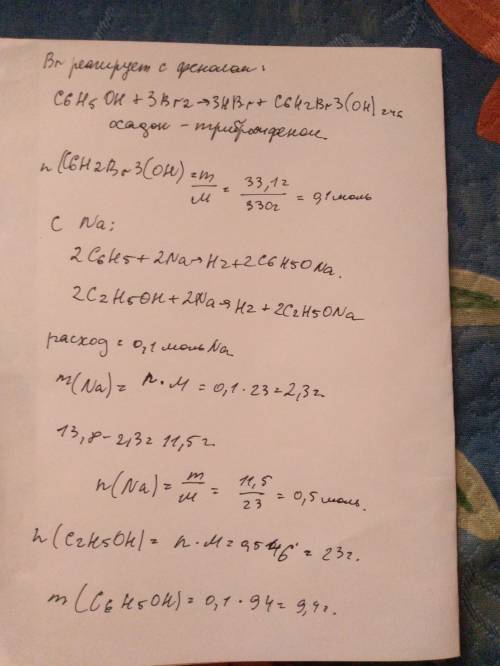 Br реагирует с фенолом:
C6H5OH + 3Br2 → 3HBr + C6H2Br3(OH) 246
осадок - трибромфенол
n(C6H2Br3(OH) = m/M = 33,1г/330г = 0,1 моль
С Na:
2C6H5 + 2Na → H2 + 2C6H5ONa.
2C2H5OH + 2Na → H2 + 2C2H5ONa
расход = 0,1 моль Na
m(Na) = n·M = 0,1·23 = 2,3г.
13,8 - 2,3 = 11,5г
n(Na) = m/M = 11,5/23 = 0,5 моль.
n(C2H5OH) = n·M = 0,5·46 = 23г.
m(C6H5OH) = 0,1·94 = 9,4г.